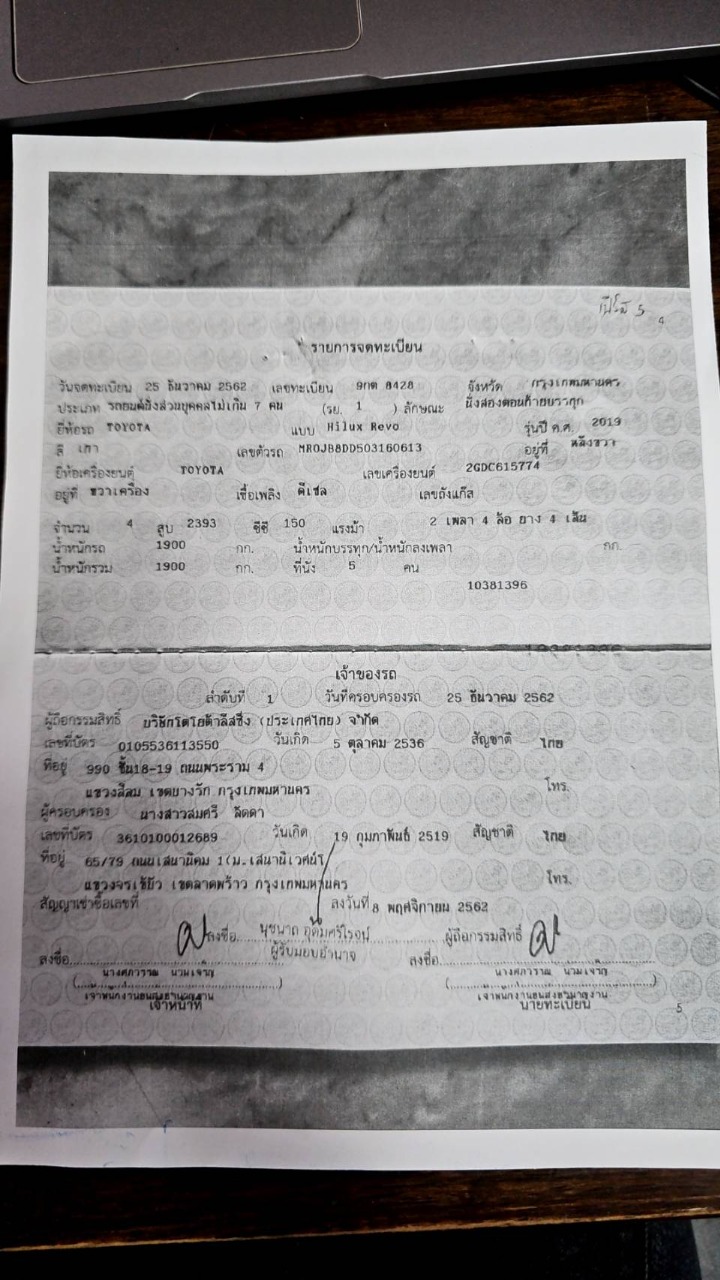 รายการจดทะเบียน
วันจดทะเบียน 25 ธันวาคม 2562 เลขทะเบียน 9กต 8428 จังหวัด กรุงเทพมหานคร
ประเภท รถยนต์นั่งส่วนบุคคลไม่เกิน 7 คน (รย. 1 ) ลักษณะ นั่งสองตอนท้ายบรรทุก
ยี่ห้อรถ TOYOTA แบบ Hilux Revo รุ่นปี ค.ศ. 2019
สี เทา เลขตัวรถ MR0JB8DD503160613 อยู่ที่ หลังขวา
ยี่ห้อเครื่องยนต์ TOYOTA เลขเครื่องยนต์ 2GDC615774
อยู่ที่ ขวาเครื่อง เชื้อเพลิง ดีเซล เลขถังแก๊ส
จำนวน 4 สูบ 2393 ซีซี 150 แรงม้า 2 เพลา 4 ล้อ ยาง 4 เส้น
น้ำหนักรถ 1900 กก. น้ำหนักบรรทุก/น้ำหนักลงเพลา กก.
น้ำหนักรวม 1900 กก. ที่นั่ง 5 คน
10381396
เจ้าของรถ
ลำดับที่ 1 วันที่ครอบครองรถ 25 ธันวาคม 2562
ผู้ถือกรรมสิทธิ์ บริษัทโตโยต้าลีสซิ่ง (ประเทศไทย) จำกัด
เลขที่บัตร 0105536113550 วันเกิด 5 ตุลาคม 2536 สัญชาติ ไทย
ที่อยู่ 990 ชั้น18-19 ถนนพระราม 4
แขวงสีลม เขตบางรัก กรุงเทพมหานคร โทร.
ผู้ครอบครอง นางสาวสมศรี ลัดดา
เลขที่บัตร 3610100012689 วันเกิด 19 กุมภาพันธ์ 2519 สัญชาติ ไทย
ที่อยู่ 65/79 ถนนเสนานิคม 1(ม.เสนานิเวศน์)
แขวงจรเข้บัว เขตลาดพร้าว กรุงเทพมหานคร โทร.
สัญญาเช่าซื้อเลขที่ ลงวันที่ 8 พฤศจิกายน 2562
ลงชื่อ นุชนาถ อุดมศรีไรจน์ ผู้ถือกรรมสิทธิ์
ลงชื่อ ผู้รับมอบอำนาจ ลงชื่อ
เจ้าพนักงานขนส่งชำนาญงาน เจ้าพนักงานขนส่งชำนาญงาน
เจ้าหน้าที่ นายทะเบียน
5